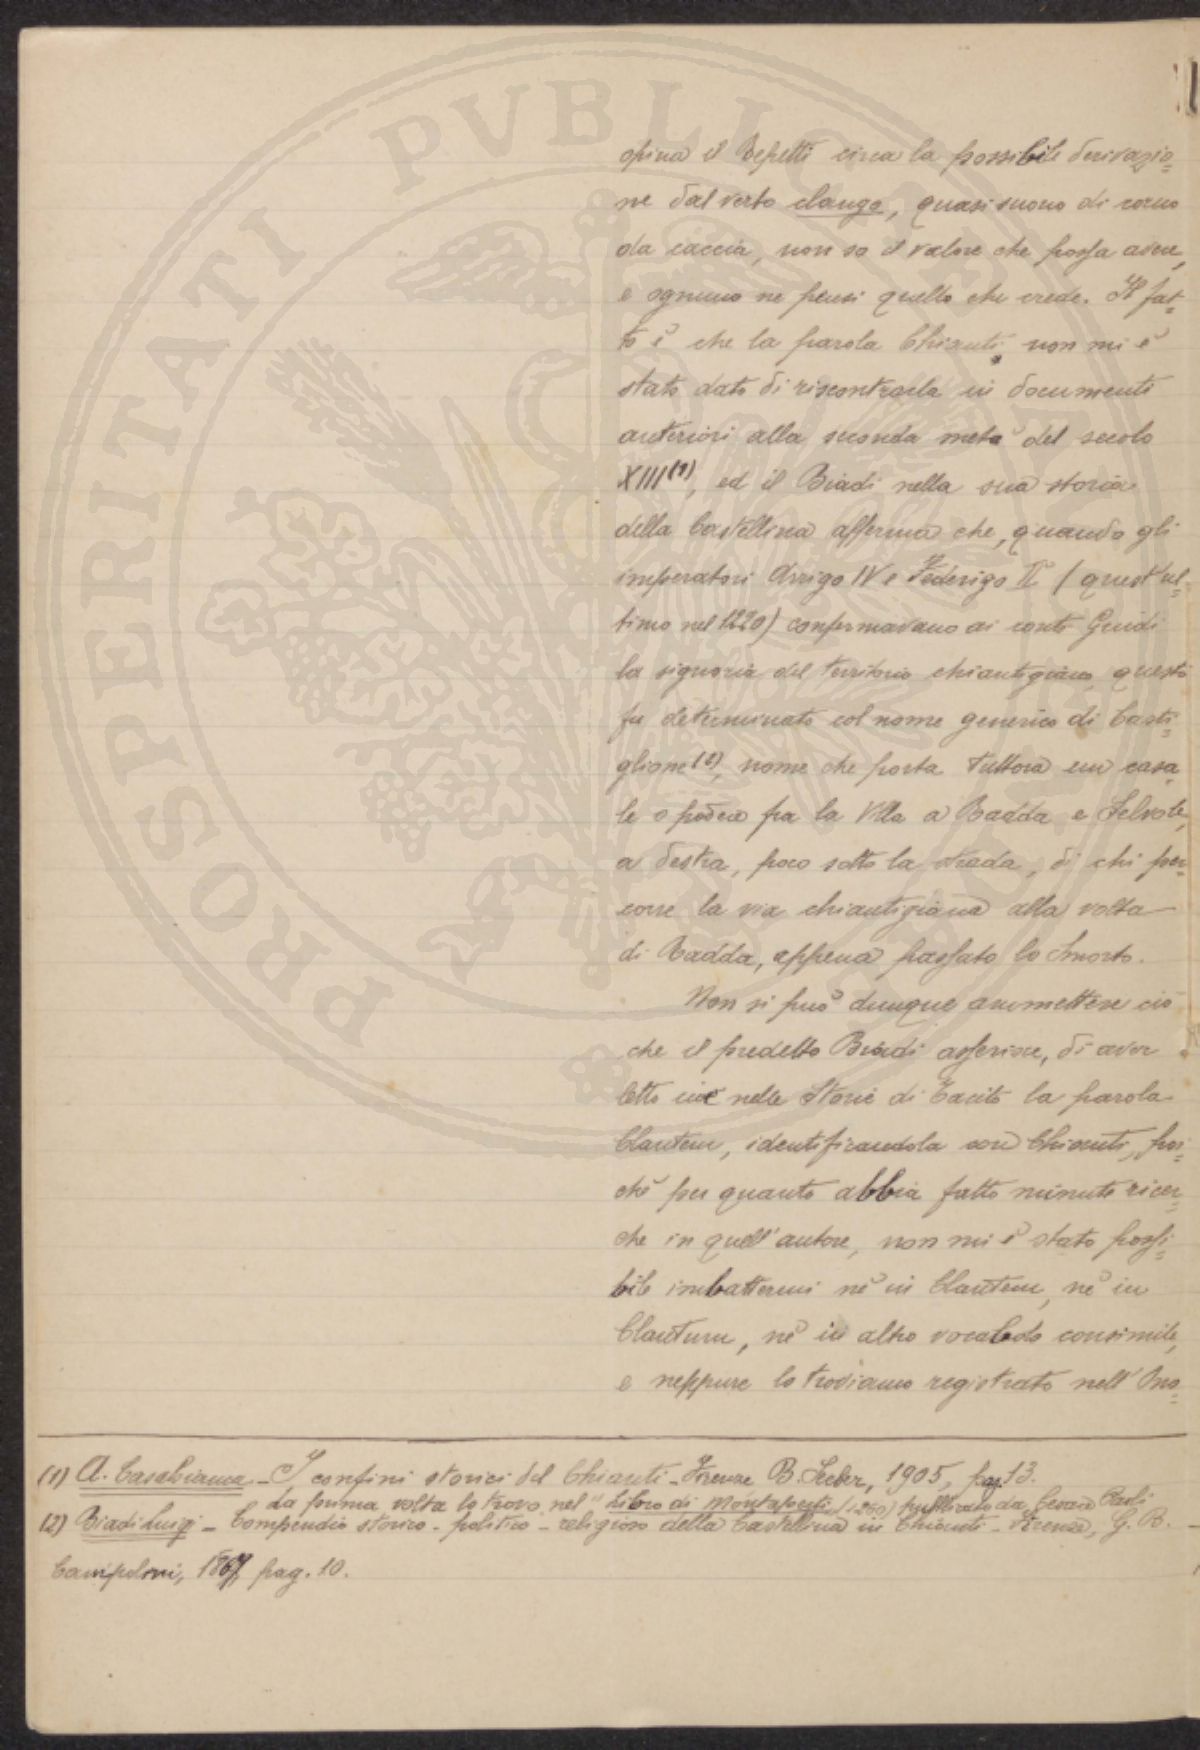 opina il Repetti circa la possibile derivazio=
ne dal verbo clango, quasi suono di corno
da caccia, non so il valore che possa avere,
e ognuno ne pensi quello che crede. Il fat=
to è che la parola Chianti non mi è
stato dato di riscontrarla in documenti
anteriori alla seconda metà del secolo
XIII(1), ed il Biadi nella sua storia
della Castellina afferma che, quando gli
imperatori Arrigo IV e Federigo II (quest'ul=
timo nel 1220) confermavano ai conti Guidi
la signoria del territorio chiantigiano, questo
fu determinato col nome generico di Casti=
glione(2), nome che porta tuttora un casa=
le o podere fra la Villa a Radda e Selvole,
a destra, poco sotto la strada, di chi per=
corre la via chiantigiana alla volta
di Radda, appena passato lo Smorto.
Non si può dunque ammettere ciò
che il predetto Biadi asserisce, di aver
letto cioè nelle Storie di Tacito la parola
Clantem, identificandola con Chianti, poi=
chè per quanto abbia fatto minute ricer=
che in quell'autore, non mi è stato possi=
bile imbattermi nè in Clantem, nè in
Clantum, nè in altro vocabolo consimile,
e neppure lo troviamo registrato nell'Ono=
(1) A. Casabianca - I confini storici del Chianti - Firenze B. Seeber, 1905, pag. 13.
La prima volta lo trovo nel "Libro di Montaperti (1260) pubblicato da Cesare Paoli
(2) Biadi Luigi - Compendio storico - politico - religioso della Castellina in Chianti - Firenze, G. B.
Campolmi, pag. 10.
PROSPERITATI PVBLICAE